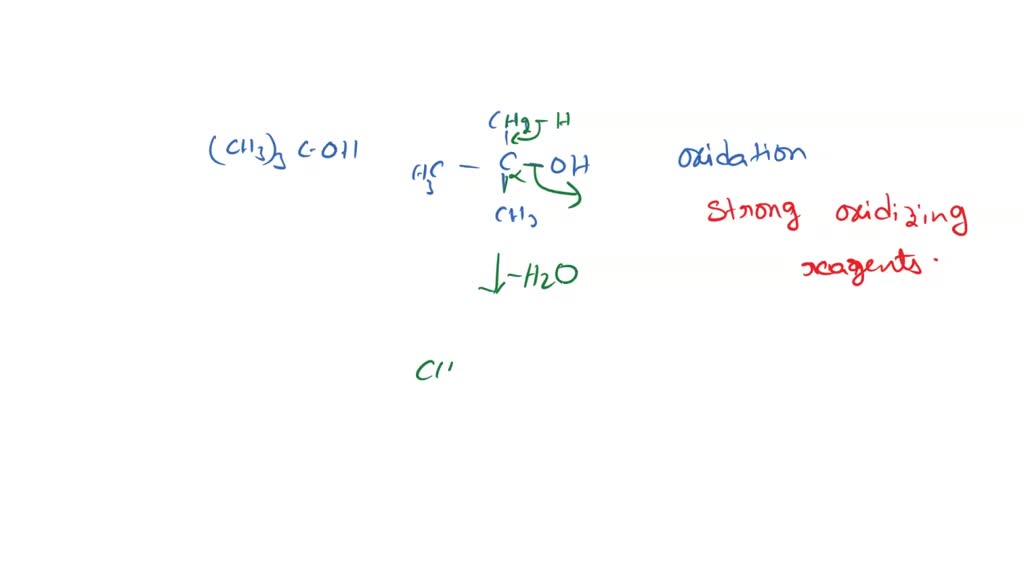 (CH3)3 C-OH
CH2-H
H3C - C - OH
α
CH3
oxidation
strong oxidizing
reagents.
↓-H2O
CH